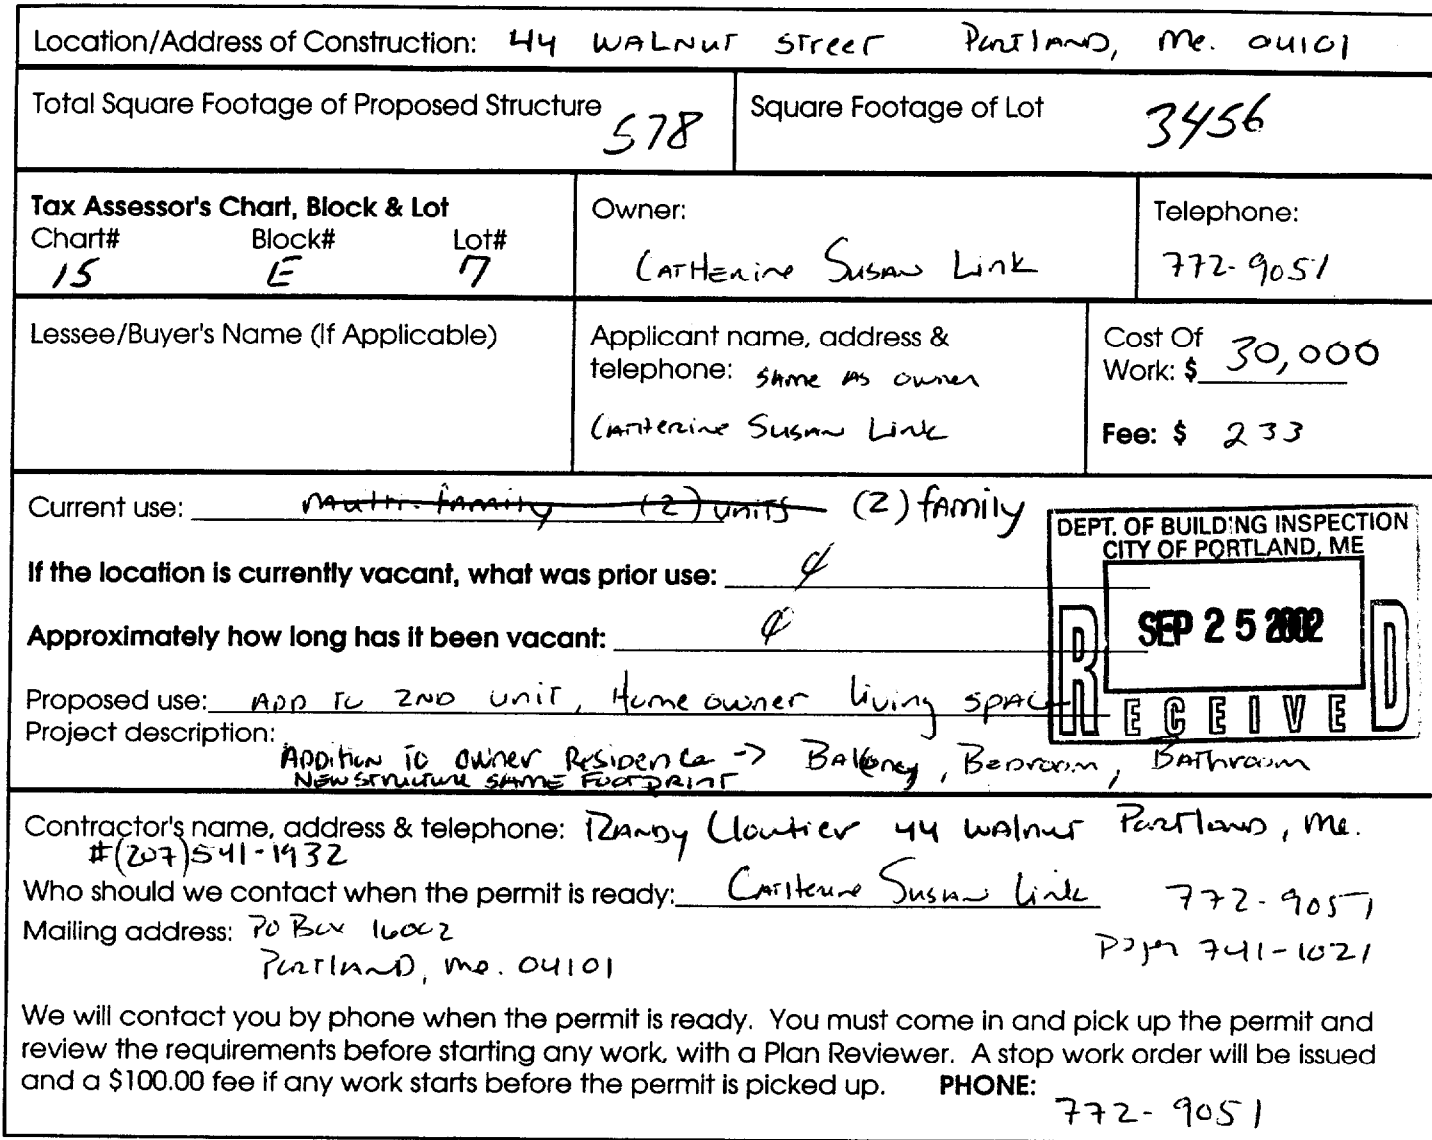 Location/Address of Construction: 44 WALNUT Street Portland, Me. 04101
Total Square Footage of Proposed Structure 578
Square Footage of Lot 3456
Tax Assessor's Chart, Block & Lot
Chart# Block# Lot#
15 E 7
Owner:
Catherine Susan Link
Telephone:
772-9051
Lessee/Buyer's Name (If Applicable)
Applicant name, address &
telephone: same as owner
Catherine Susan Link
Cost Of
Work: $ 30,000
Fee: $ 233
Current use: Multi-family (2) units (2) family
If the location is currently vacant, what was prior use:
Approximately how long has it been vacant:
Proposed use: ADD to 2ND unit, Home owner living space
Project description:
Addition to owner Residence -> Balkoney, Bedroom, Bathroom
New structure same footprint
DEPT. OF BUILDING INSPECTION
CITY OF PORTLAND, ME
SEP 25 2002
RECEIVED
Contractor's name, address & telephone: Randy Cloutier 44 Walnut Portland, Me.
#(207)541-1932
Who should we contact when the permit is ready: Catherine Susan Link 772-9051
Mailing address: PO Box 16002
Portland, me. 04101
Pager 741-1021
We will contact you by phone when the permit is ready. You must come in and pick up the permit and
review the requirements before starting any work, with a Plan Reviewer. A stop work order will be issued
and a $100.00 fee if any work starts before the permit is picked up. PHONE:
772-9051